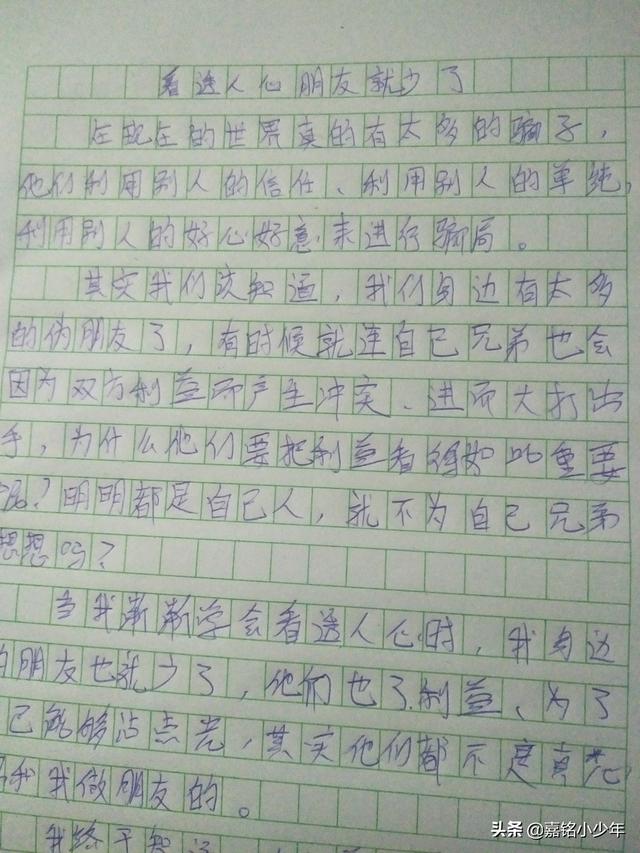 看透人心朋友就少了
在现在的世界真的有太多的骗子，
他们利用别人的信任、利用别人的单纯，
利用别人的好心好意来进行骗局。
其实我们该知道，我们身边有太多
的伪朋友了，有时候就连自己兄弟也会
因为双方利益而产生冲突、进而大打出
手，为什么他们要把利益看得如此重要
呢？明明都是自己人，就不为自己兄弟
想想吗？
当我渐渐学会看透人心时，我身边
的朋友也就少了，他们也了利益、为了
己能够沾点光，其实他们都不是真心
和我做朋友的。
我终于知道
头条 @嘉铭小少年